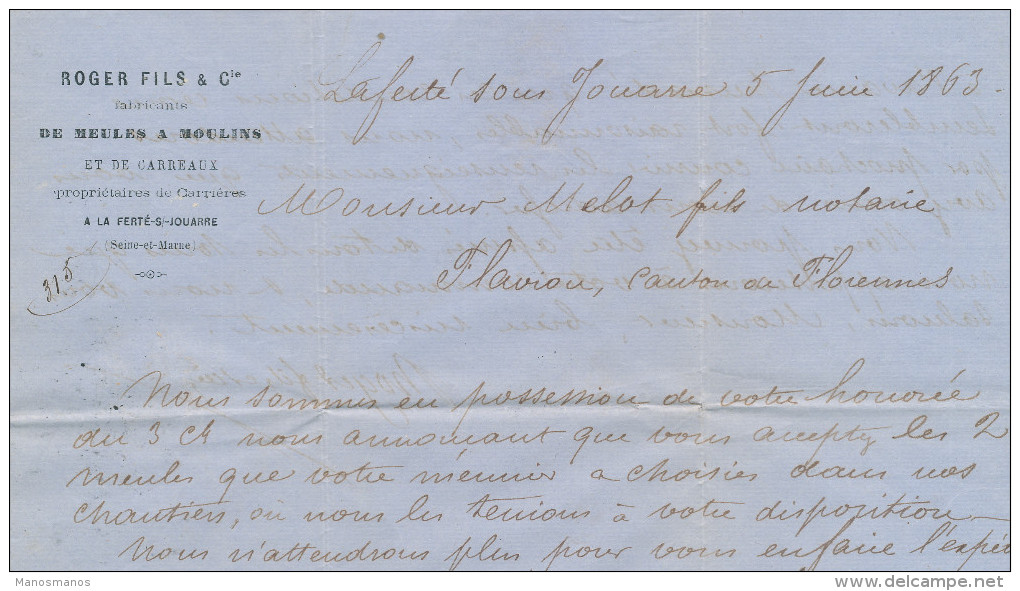 ROGER FILS & Cie
fabricants
DE MEULES A MOULINS
ET DE CARREAUX
propriétaires de Carrières
A LA FERTÉ-S/-JOUARRE
(Seine-et-Marne)
315
Laferté sous Jouarre 5 Juin 1863.
Monsieur Melot fils notaire
Flavion, Canton de Florennes
Nous sommes en possession de votre honorée
du 3 Ct nous annonçant que vous acceptez les 2
meules que votre meunier a choisies dans nos
chantiers, où nous les tenions à votre disposition
Nous n'attendrons plus pour vous en faire l'expé
Manosmanos
delcampe.net